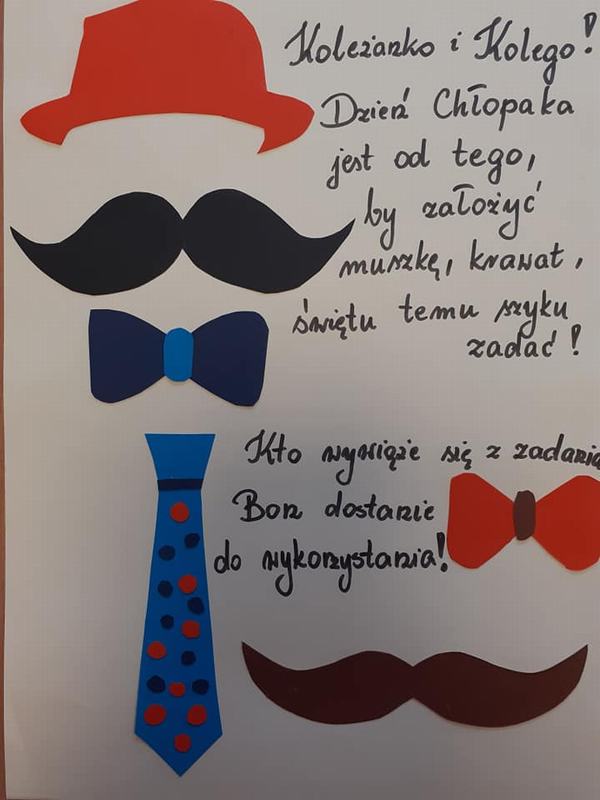 Koleżanko i Kolego!
Dzień Chłopaka
jest od tego,
by założyć
muszkę, krawat,
świętu temu szyku
zadać!
Kto wywiąże się z zadania
Bon dostanie
do wykorzystania!